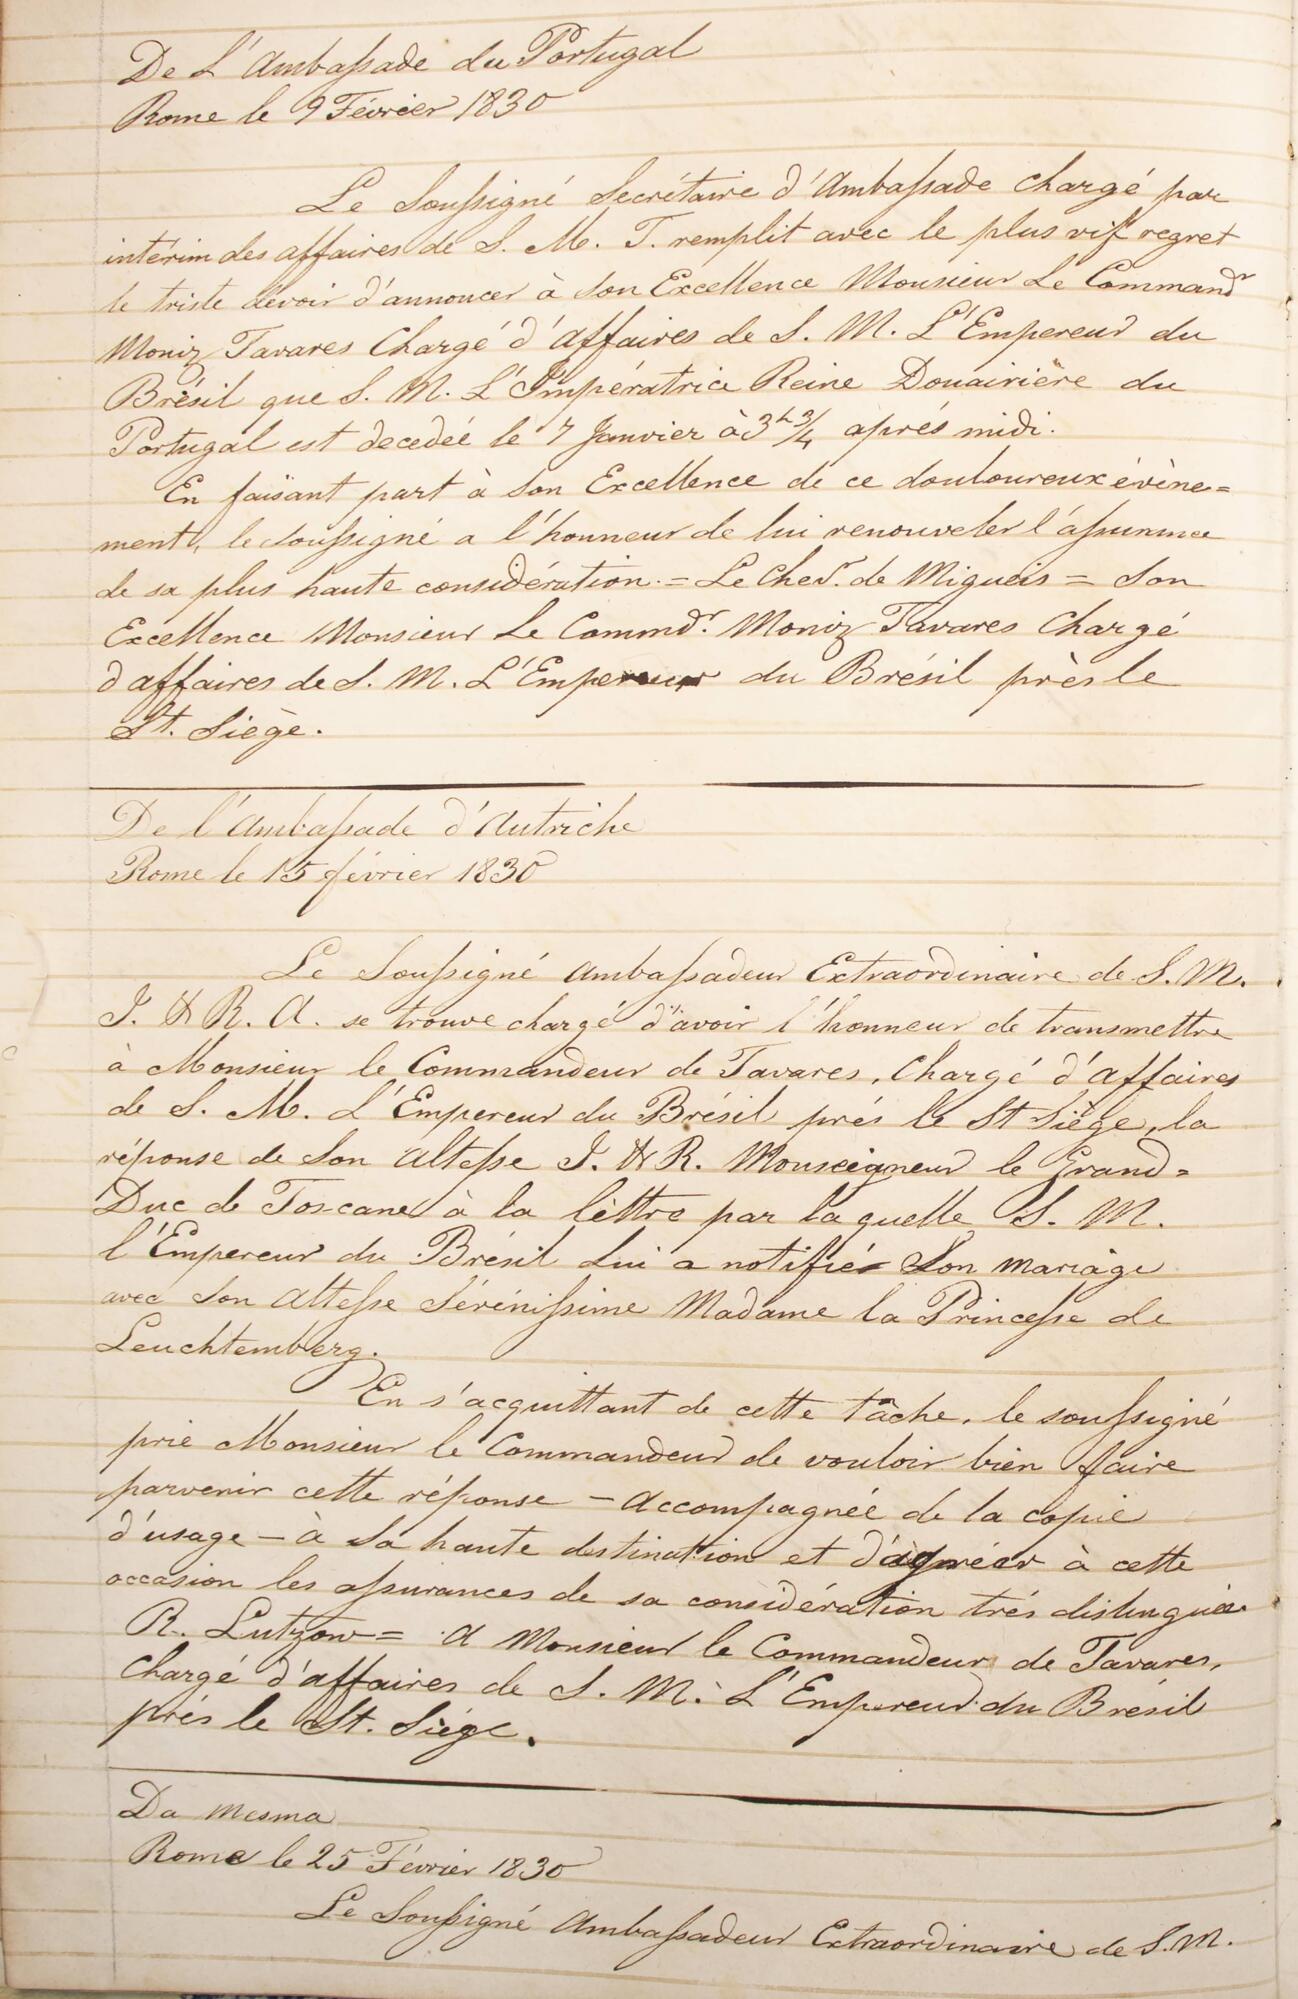 De L'Ambassade du Portugal
Rome le 9 Février 1830
Le Soussigné Secrétaire d'Ambassade chargé par
intérim des affaires de S. M. T. remplit avec le plus vif regret
le triste dévoir d'annoncer à Son Excellence Monsieur Le Command.r
Moniz Tavares Chargé d'Affaires de S. M. L'Empereur du
Brésil que S. M. L'Impératrice Reine Douairière du
Portugal est decedée le 7 Janvier à 3h 3/4 aprés midi.
En faisant part à Son Excellence de ce douloureux évène=
ment, le soussigné a l'honneur de lui renouveler l'assurance
de sa plus haute considération. = Le Chev.r de Migueis = Son
Excellence Monsieur Le Commd.r Moniz Tavares Chargé
d'affaires de S. M. L'Empereur du Brésil près le
St. Siège.
De l'Ambassade d'Autriche
Rome le 15 février 1830
Le Soussigné Ambassadeur Extraordinaire de S. M.
I. & R. A. se trouve chargé d'avoir l'honneur de transmettre
à Monsieur le Commandeur de Tavares, Chargé d'Affaires
de S. M. L'Empereur du Brésil prés le St Siège, la
réponse de Son Altesse I. & R. Monseigneur le Grand=
Duc de Toscane à la lèttre par laquelle S. M.
l'Empereur du Brésil Lui a notifié Son mariage
avec Son Altesse Sérénissime Madame la Princesse de
Leuchtemberg.
En s'acquittant de cette tâche, le soussigné
prie Monsieur le Commandeur de vouloir bien faire
parvenir cette réponse – accompagnée de la copie
d'usage – à Sa haute destination et d'agréer à cette
occasion les assurances de sa considération trés distinguée
R. Lutzow = A Monsieur le Commandeur de Tavares,
Chargé d'affaires de S. M. L'Empereur du Brésil
prés le St. Siége.
Da mesma
Rome le 25 Février 1830
Le Soussigné Ambassadeur Extraordinaire de S. M.